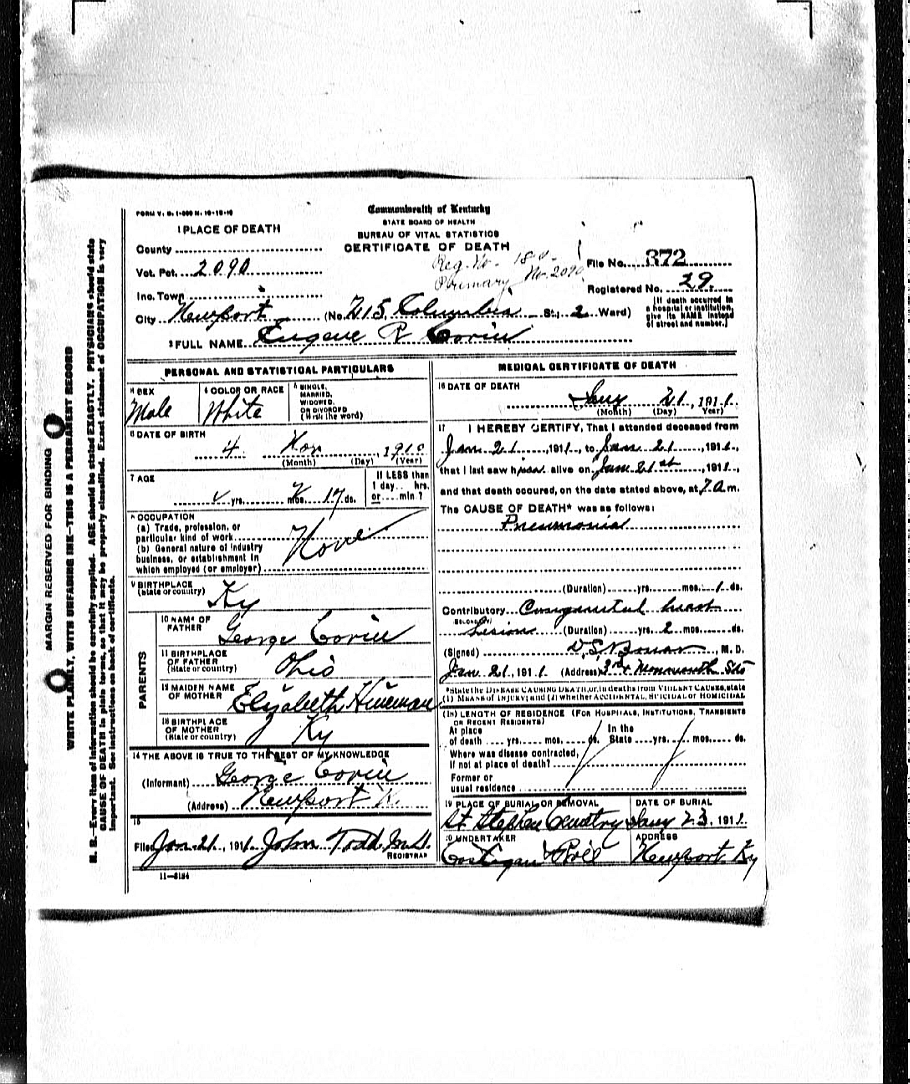 FORM V. S. 1-
Commonwealth of Kentucky
STATE BOARD OF HEALTH
BUREAU OF VITAL STATISTICS
CERTIFICATE OF DEATH
1 PLACE OF DEATH
County
Vot. Pct. 2090
Inc. Town
City Newport (No. 715 Columbia St.; 2 Ward)
Reg. No. -
Primary No. 2090
File No. 372
Registered No. 29
(If death occurred in
a hospital or institution,
give its NAME instead
of street and number.)
2 FULL NAME Eugene R
PERSONAL AND STATISTICAL PARTICULARS
3 SEX
Male
4 COLOR OR RACE
White
5 SINGLE,
MARRIED,
WIDOWED,
OR DIVORCED
(Write the word)
6 DATE OF BIRTH
4 Nov , 1910
(Month) (Day) (Year)
7 AGE
yrs. mos. 17 ds.
If LESS than
1 day hrs.
or min.?
8 OCCUPATION
(a) Trade, profession, or
particular kind of work
(b) General nature of industry
business, or establishment in
which employed (or employer)
None
9 BIRTHPLACE
(State or country)
Ky
PARENTS
10 NAME OF
FATHER
George
11 BIRTHPLACE
OF FATHER
(State or country)
Ohio
12 MAIDEN NAME
OF MOTHER
Elizabeth
13 BIRTHPLACE
OF MOTHER
(State or country)
Ky
14 THE ABOVE IS TRUE TO THE BEST OF MY KNOWLEDGE
(Informant) George
(Address) Newport K.
15
Filed Jan 21, 1911. John Todd M.D.
REGISTRAR
11-
MEDICAL CERTIFICATE OF DEATH
16 DATE OF DEATH
Jany 21, 1911.
(Month) (Day) (Year)
17 I HEREBY CERTIFY, That I attended deceased from
Jan 21, 1911, to Jan 21, 1911,
that I last saw him alive on Jan 21st, 1911,
and that death occured, on the date stated above, at 7 a m.
The CAUSE OF DEATH* was as follows:
Pneumonia
(Duration) yrs. mos. 1 ds.
Contributory Congenital heart
Lesion (Duration) yrs. 2 mos. ds.
(Signed) , M. D.
Jan 21, 1911 (Address) 3rd & Monmouth Sts
*State the DISEASE CAUSING DEATH, or, in deaths from VIOLENT CAUSES, state
(1) MEANS OF INJURY; and (2) whether ACCIDENTAL, SUICIDAL or HOMICIDAL
18 LENGTH OF RESIDENCE (FOR HOSPITALS, INSTITUTIONS, TRANSIENTS
OR RECENT RESIDENTS)
At place
of death yrs. mos. ds.
In the
State yrs. mos. ds.
Where was disease contracted,
If not at place of death?
Former or
usual residence
19 PLACE OF BURIAL OR REMOVAL
St. Stephen
DATE OF BURIAL
Jany 23, 1911.
20 UNDERTAKER
ADDRESS
Newport Ky
MARGIN RESERVED FOR BINDING
WRITE PLAINLY, WITH UNFADING INK—THIS IS A PERMANENT RECORD
N. B.—Every item of information should be carefully supplied. AGE should be stated EXACTLY. PHYSICIANS should state
CAUSE OF DEATH in plain terms, so that it may be properly classified. Exact statement of OCCUPATION is very
important. See instructions on back of certificate.